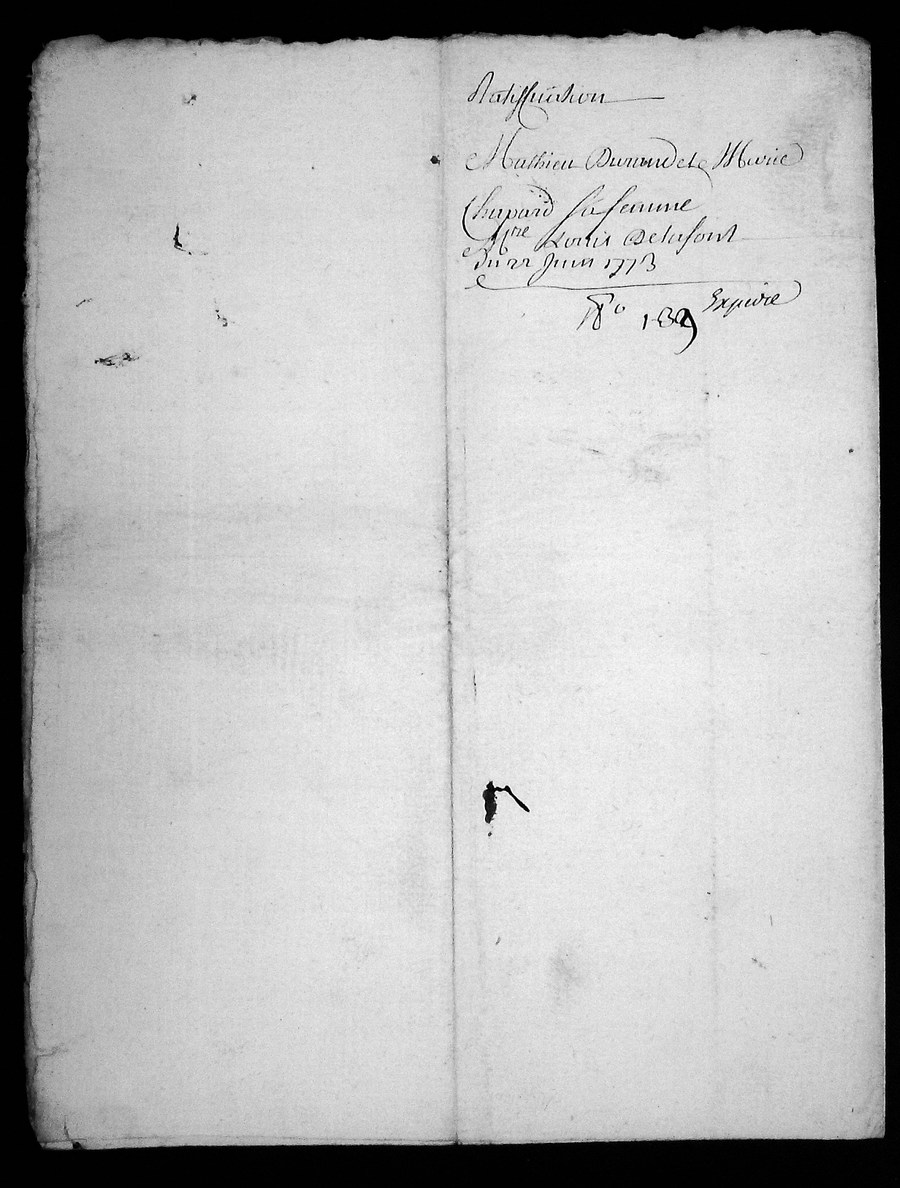 Ratiffication
Mathieu Durand et Marie
Chapard sa femme
Mre Louis Delafont
du 22 Juin 1773
Expedie
No 139